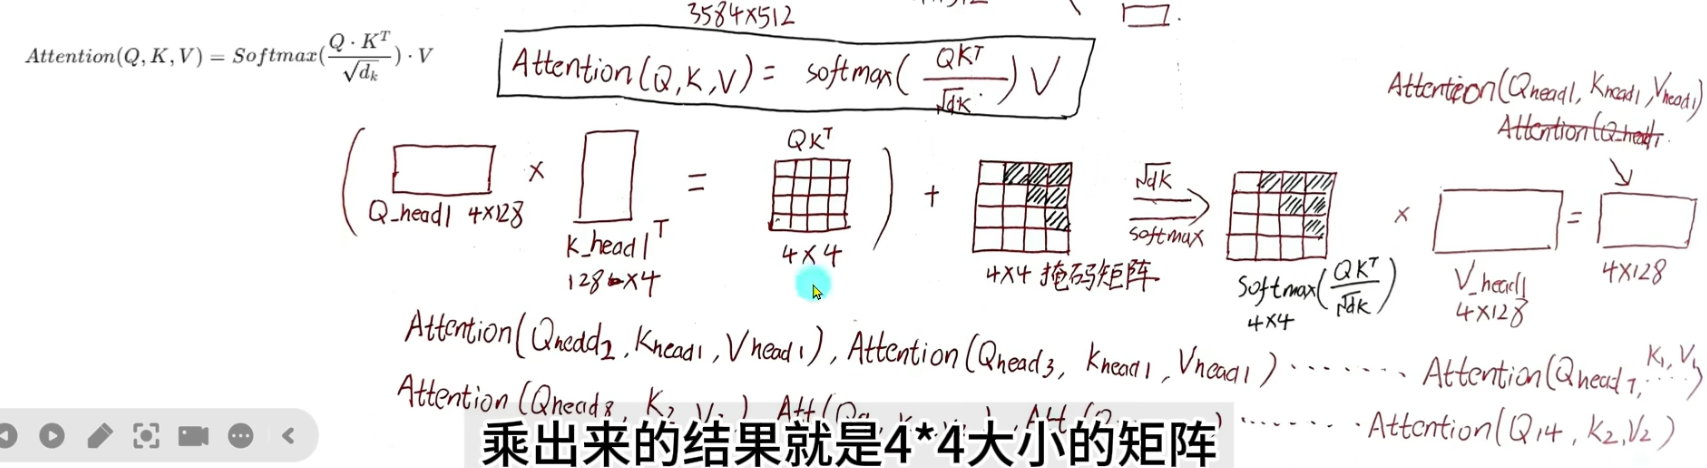 3584×512
Attention(Q, K, V) = Softmax(Q · K^T / √d_k) · V
Attention(Q,K,V) = softmax(QK^T / √dk) V
Attention(Qhead1, Khead1, Vhead1)
Attention(Q_head1
QK^T
√dk
softmax
( × = ) + × =
Q_head1 4×128
K_head1^T
128×4
4×4
4×4 掩码矩阵
Softmax(QK^T / √dk)
4×4
V_head1
4×128
4×128
Attention(Qhead2, Khead1, Vhead1), Attention(Qhead3, Khead1, Vhead1) ······· Attention(Qhead7, K1, V1)
Attention(Qhead8, K2, V2), Att( ······· Attention(Q14, K2, V2)
乘出来的结果就是4*4大小的矩阵